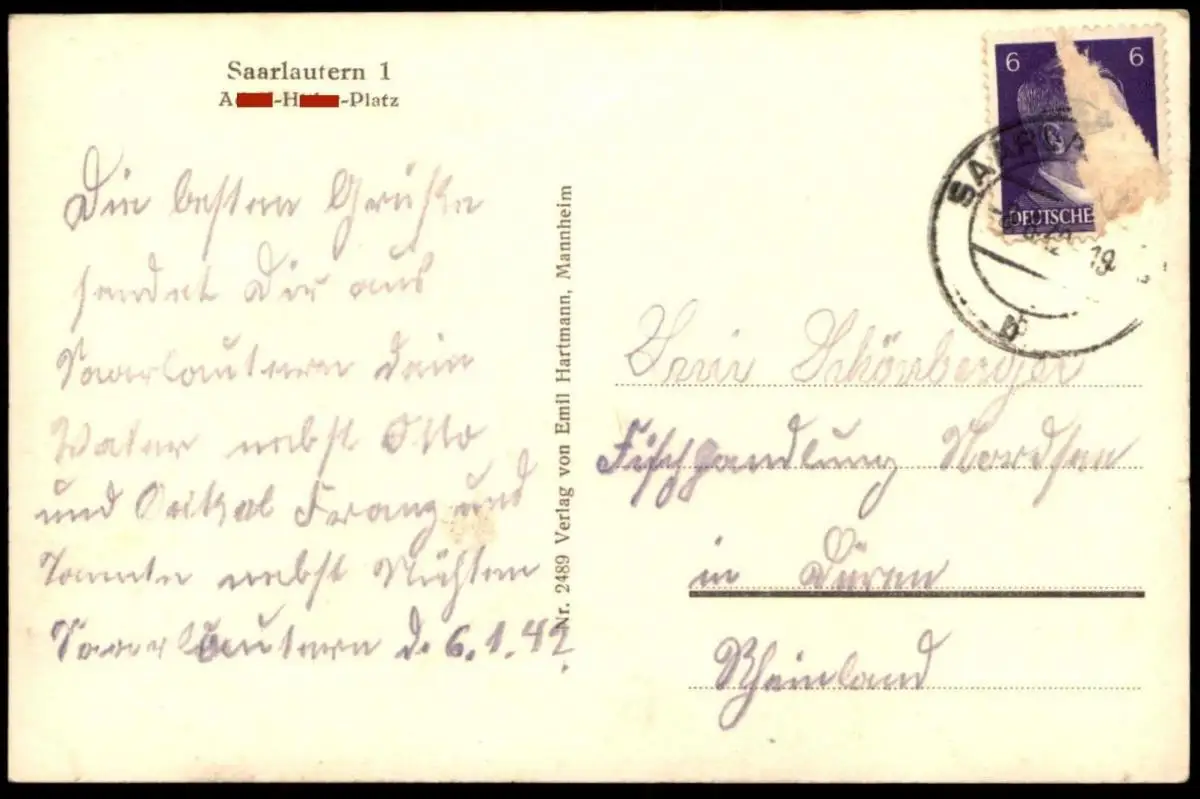 Saarlautern 1
A-H-Platz
Die besten Grüße
sendet Dir aus
Saarlautern dein
Vater nebst Otto
und Onkel Franz und
Tante nebst Nichten
Saarlautern d. 6.1.42.
Nr. 2489 Verlag von Emil Hartmann, Mannheim
6 6
DEUTSCHE
SAAR
19
b
Schönberger
Fischhandlung Nordsee
in Düren
Rheinland